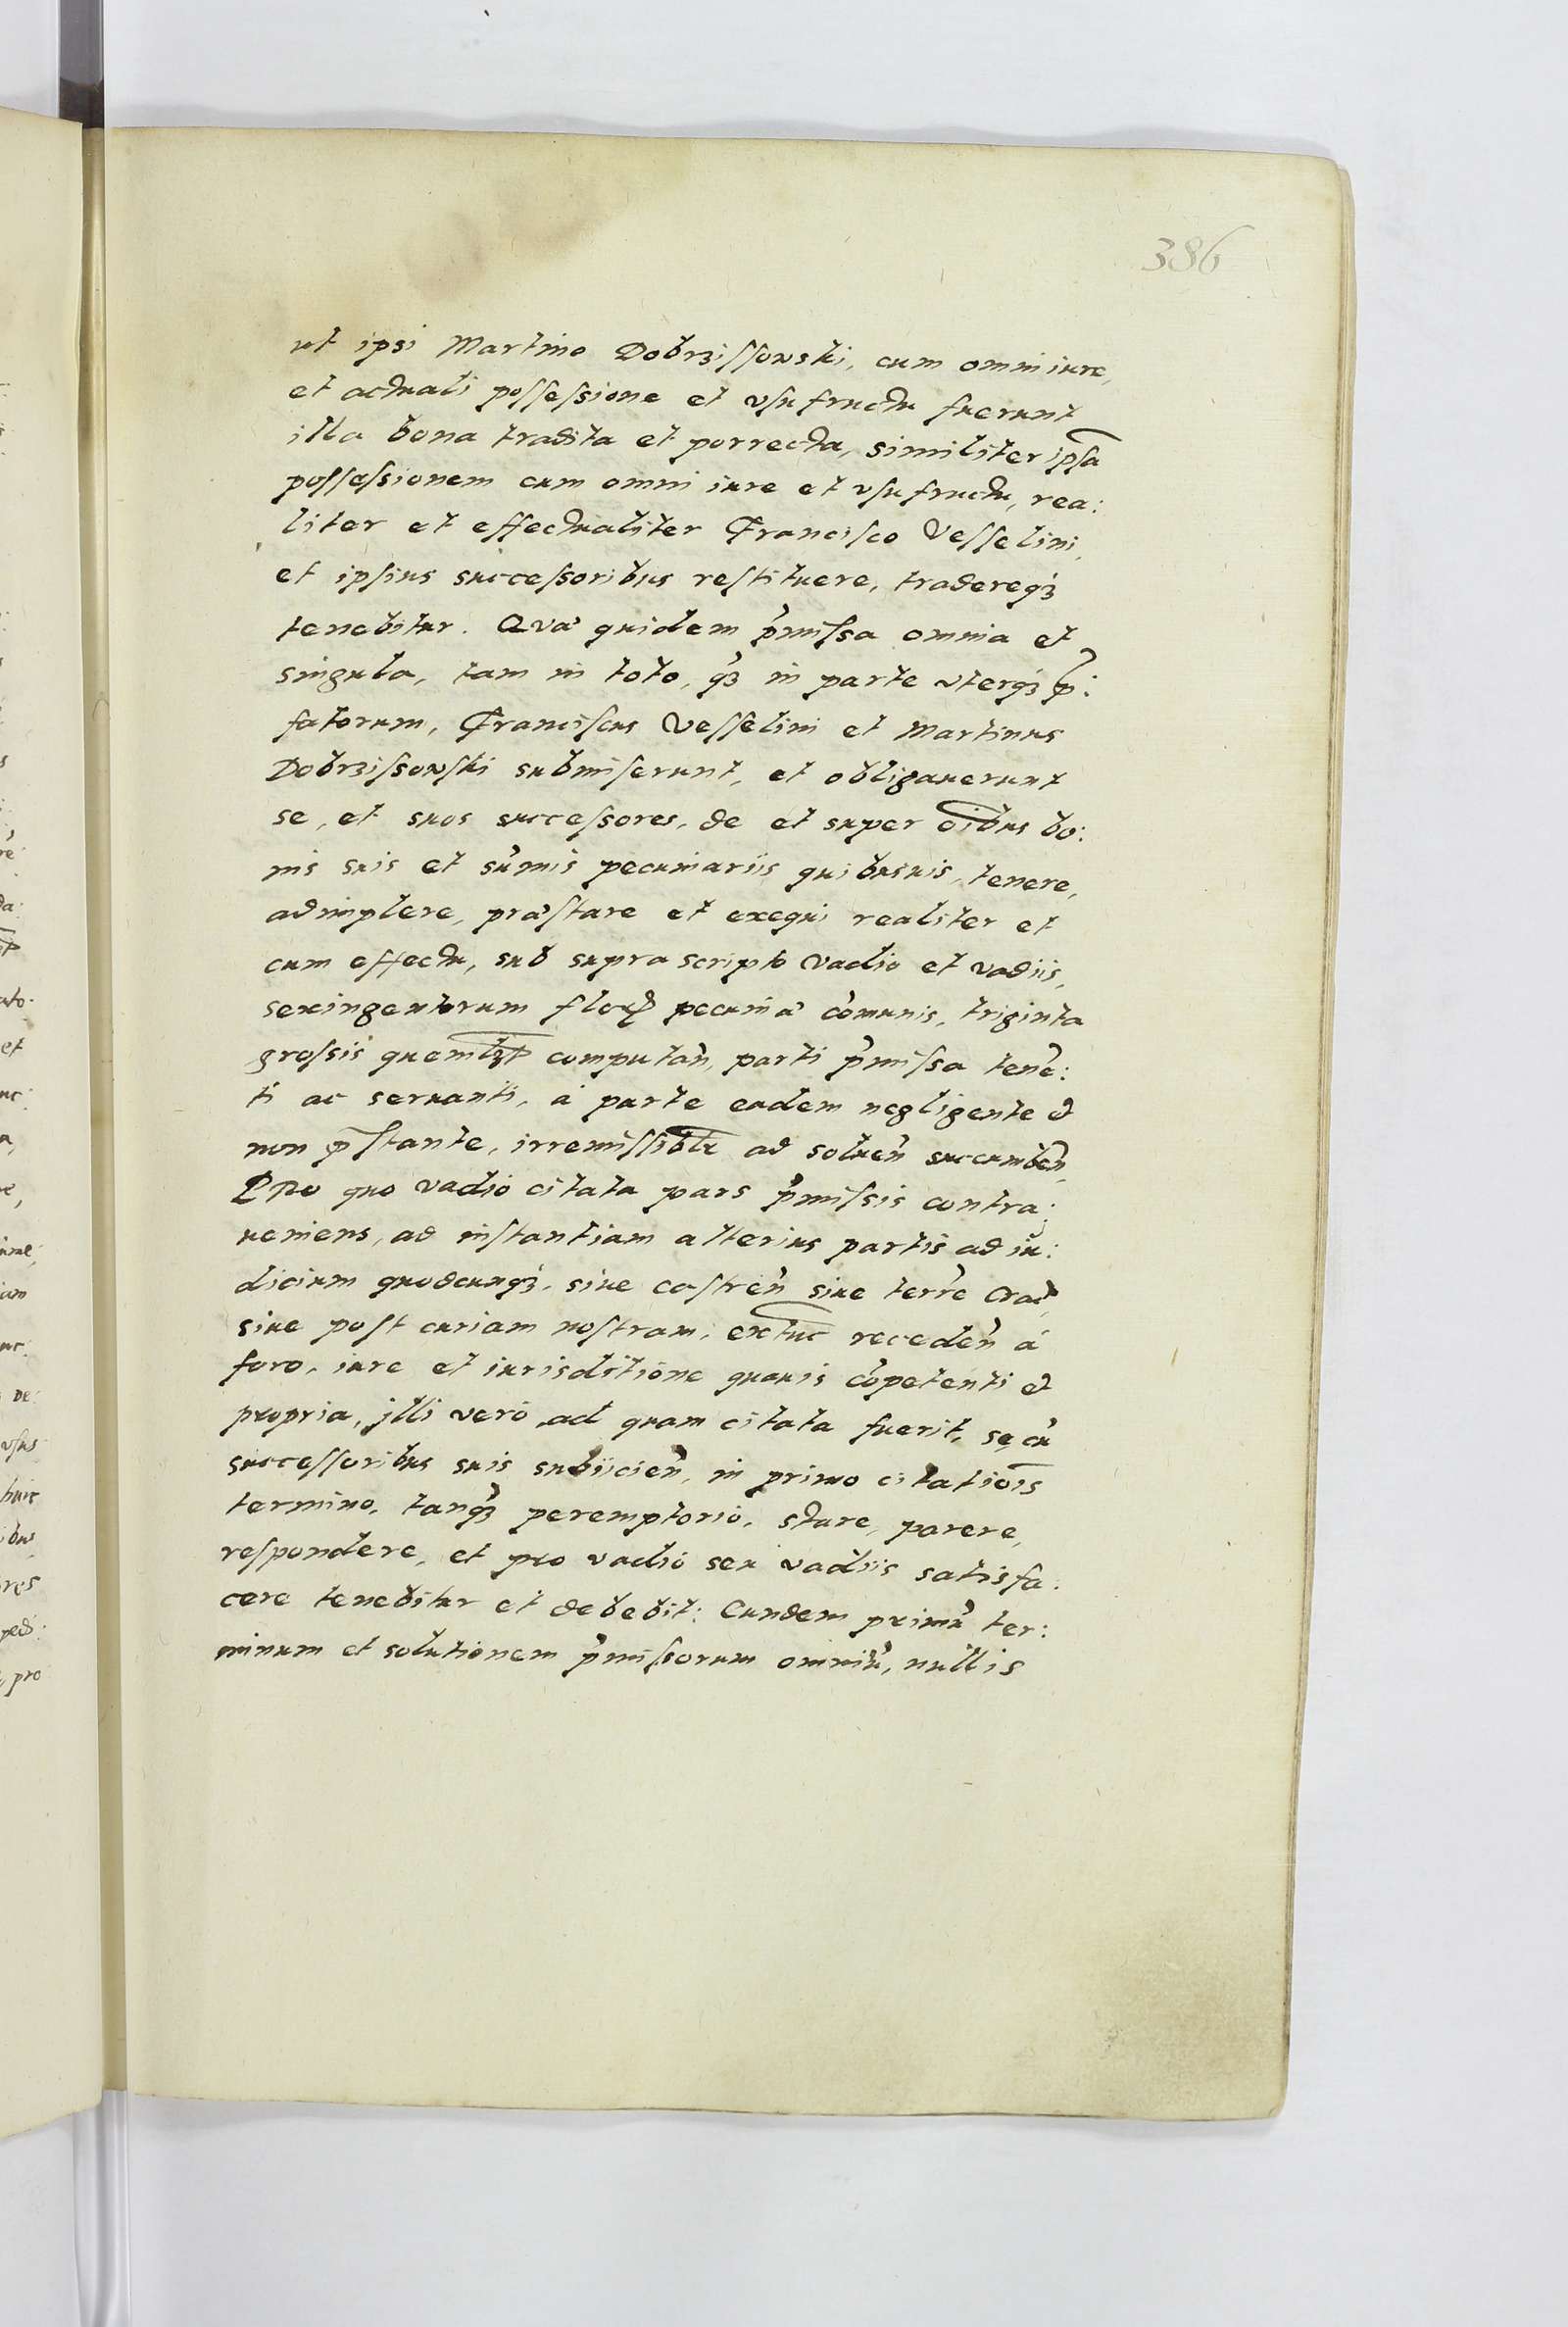 386
ut ipsi Martino Dobrzissowski, cum omni iure,
et actuali possessione et vsufructu fuerunt
illa bona tradita et porrecta, similiter ipsa
possessionem cum omni iure et vsufructu, rea:
liter et effectualiter Francisco Vesselini,
et ipsius successoribus restituere, tradereqȝ
tenebitur. Quæ quidem p̓missa omnia et
singula, tam in toto, q̓ȝ in parte vterqȝ p̄:
fatorum, Franciscus Vesselini et Martinus
Dobrzissowski submiserunt, et obligauerunt
se, et suos successores, de et super oībus bo:
nis suis et sum̓is pecuniariis quibusuis, tenere,
adimplere, præstare et exequi realiter et
cum effectu, sub supra scripto vadio et vadiis,
sexingentorum floꝝ pecuniæ com̓unis, triginta
grossis quemlȝt computan̓, parti p̓missa tene̓:
ti ac seruanti, à parte eadem negligente et
non p̄stante, irremissiblr̄ ad soluen̓ succumben̓,
PRo quo vadio citata pars p̓missis contra:
ueniens, ad instantiam alterius partis ad iu:
dicium quodcunqȝ, siue castren̓ siue terr̓e Crac̓,
siue post curiam nostram, extūc receden̓ à
foro, iure et iurisditione quauis co̓petenti et
propria, illi vero ad quam citata fuerit, se cu̓
successoribus suis subiicien̓, in primo citatiōis
termino, tanq̓ȝ peremptorio, stare, parere,
respondere, et pro vadio seu vadiis satisfa:
cere tenebitur et debebit: Eundem primu̓ ter:
minum et solutionem p̓missorum omniu̓, nullis